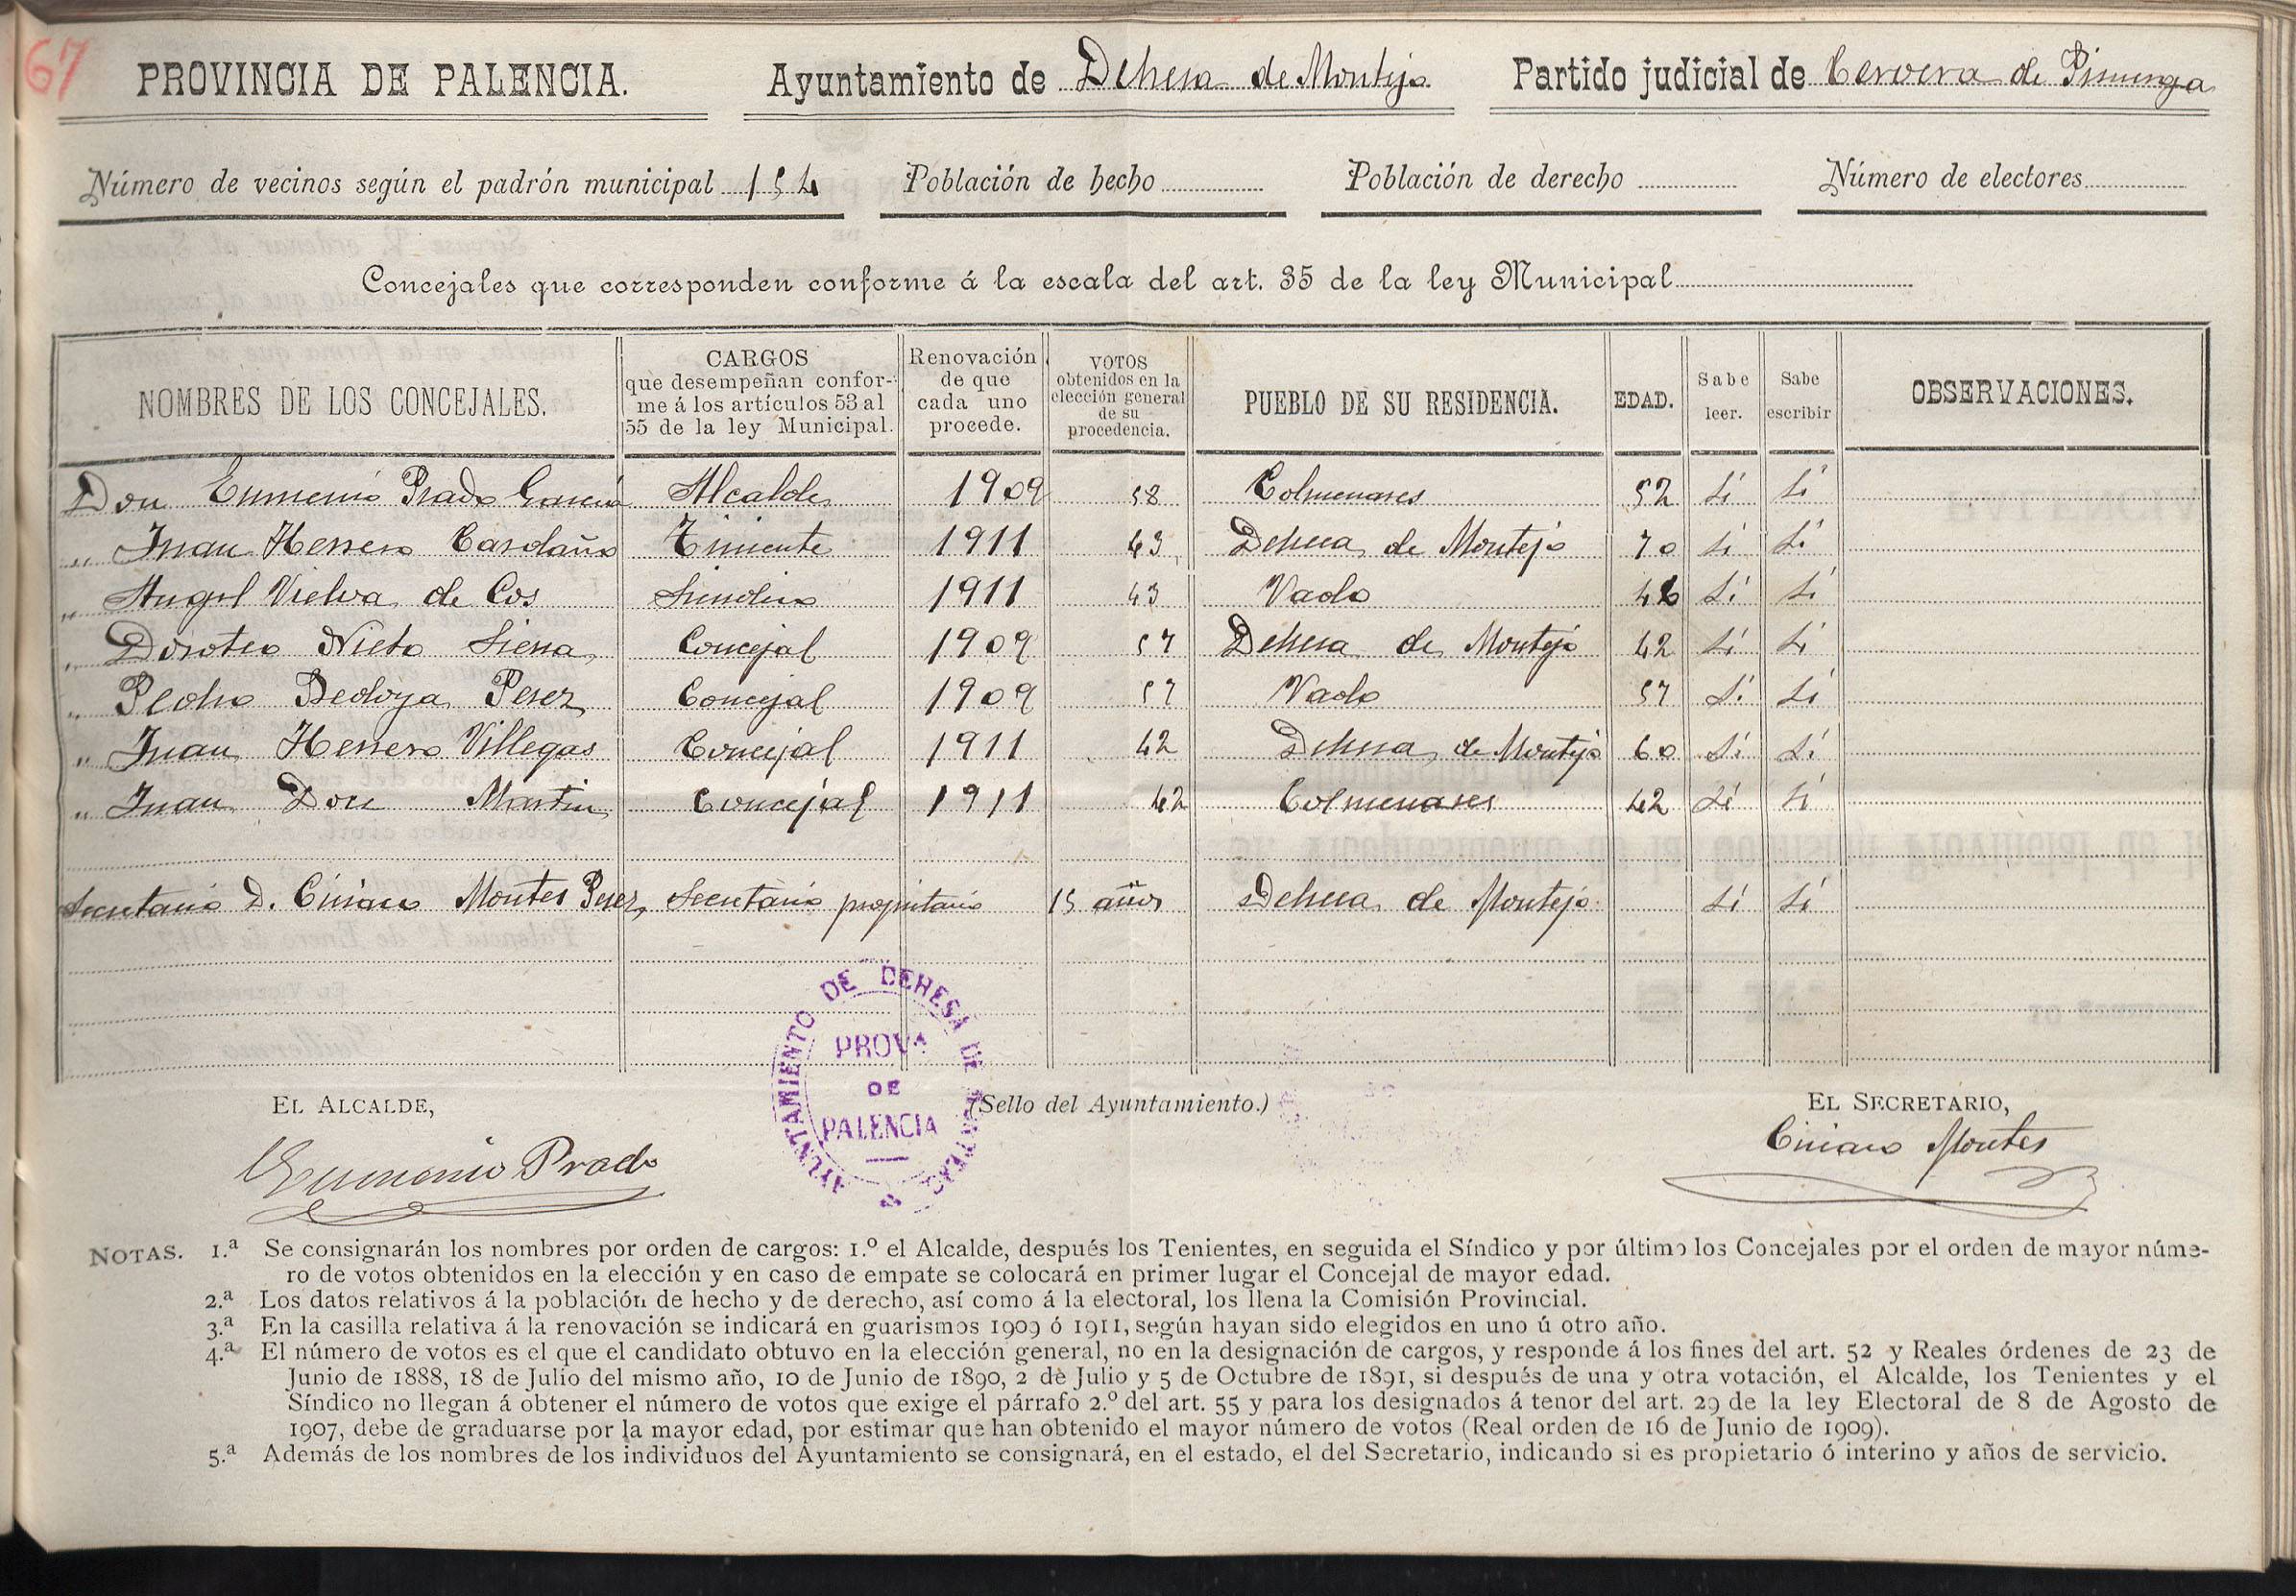 67
PROVINCIA DE PALENCIA. Ayuntamiento de Dehesa de Montejo Partido judicial de Cervera de Pisuerga
Número de vecinos según el padrón municipal 154 Población de hecho Población de derecho Número de electores
Concejales que corresponden conforme á la escala del art. 35 de la ley Municipal
NOMBRES DE LOS CONCEJALES.
CARGOS
que desempeñan confor-
me á los artículos 53 al
55 de la ley Municipal.
Renovación
de que
cada uno
procede.
VOTOS
obtenidos en la
elección general
de su
procedencia.
PUEBLO DE SU RESIDENCIA.
EDAD.
Sabe
leer.
Sabe
escribir
OBSERVACIONES.
Don Eumenio Prado García Alcalde 1909 58 Colmenares 52 Sí Sí
" Juan Herrero Cardaño Teniente 1911 43 Dehesa de Montejo 70 Sí Sí
" Angel Vielva de Cos Sindico 1911 43 Vado 46 Sí Sí
" Doroteo Nieto Sierra Concejal 1909 57 Dehesa de Montejo 42 Sí Sí
" Pedro Bedoya Perez Concejal 1909 57 Vado 57 Sí Sí
" Juan Herrero Villegas Concejal 1911 42 Dehesa de Montejo 60 Sí Sí
" Juan Don Martin Concejal 1911 42 Colmenares 42 Sí Sí
Secretario D. Ciriaco Montes Perez Secretario propietario 15 años Dehesa de Montejo Sí Sí
AYUNTAMIENTO DE DEHESA DE MONTEJO
PROVA
DE
PALENCIA
EL ALCALDE, (Sello del Ayuntamiento.) EL SECRETARIO,
Eumenio Prado Ciriaco Montes
NOTAS. 1.ª Se consignarán los nombres por orden de cargos: 1.º el Alcalde, después los Tenientes, en seguida el Síndico y por último los Concejales por el orden de mayor núme-
ro de votos obtenidos en la elección y en caso de empate se colocará en primer lugar el Concejal de mayor edad.
2.ª Los datos relativos á la población de hecho y de derecho, así como á la electoral, los llena la Comisión Provincial.
3.ª En la casilla relativa á la renovación se indicará en guarismos 1909 ó 1911, según hayan sido elegidos en uno ú otro año.
4.ª El número de votos es el que el candidato obtuvo en la elección general, no en la designación de cargos, y responde á los fines del art. 52 y Reales órdenes de 23 de
Junio de 1888, 18 de Julio del mismo año, 10 de Junio de 1890, 2 de Julio y 5 de Octubre de 1891, si después de una y otra votación, el Alcalde, los Tenientes y el
Síndico no llegan á obtener el número de votos que exige el párrafo 2.º del art. 55 y para los designados á tenor del art. 29 de la ley Electoral de 8 de Agosto de
1907, debe de graduarse por la mayor edad, por estimar que han obtenido el mayor número de votos (Real orden de 16 de Junio de 1909).
5.ª Además de los nombres de los individuos del Ayuntamiento se consignará, en el estado, el del Secretario, indicando si es propietario ó interino y años de servicio.